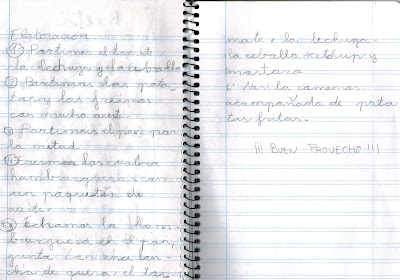 Elaboración
① Partimos el tomate
la lechuga y la ceballa
② Partimos las pata-
tas y las freimos
con mucho aceite.
③ Partimos el pan por
la mitad.
④ Freimos las cuatro
hamburguesas con
un poquetín de
aceite.
⑤ Echamos la ham-
burguesa en el pan,
junto con una lon-
cha de queso, el to-
mate, la lechuga
la ceballa ketchup y
mostaza
6 Nos la comemos
acompañada de pata
tas fritas.
¡¡¡ BUEN PROVECHO !!!